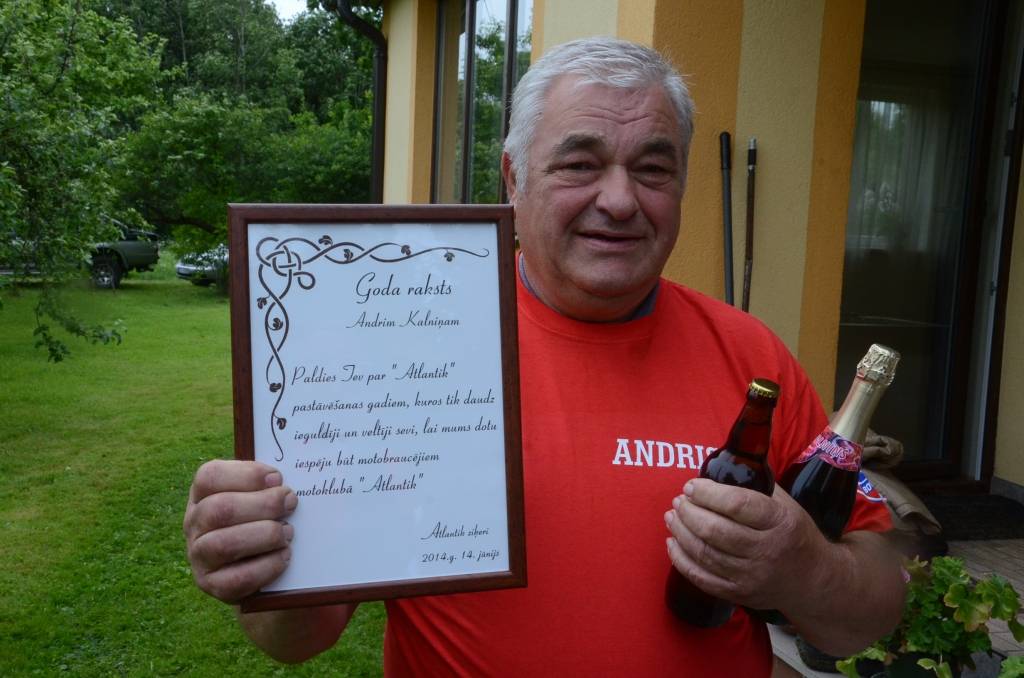 Goda raksts
Andrim Kalniņam
Paldies Tev par "Atlantik"
pastāvēšanas gadiem, kuros tik daudz
ieguldīji un veltīji sevi, lai mums dotu
iespēju būt motobraucējiem
motoklubā "Atlantik"
Atlantik ziķeri
2014.g. 14. jūnijs
ANDRIS